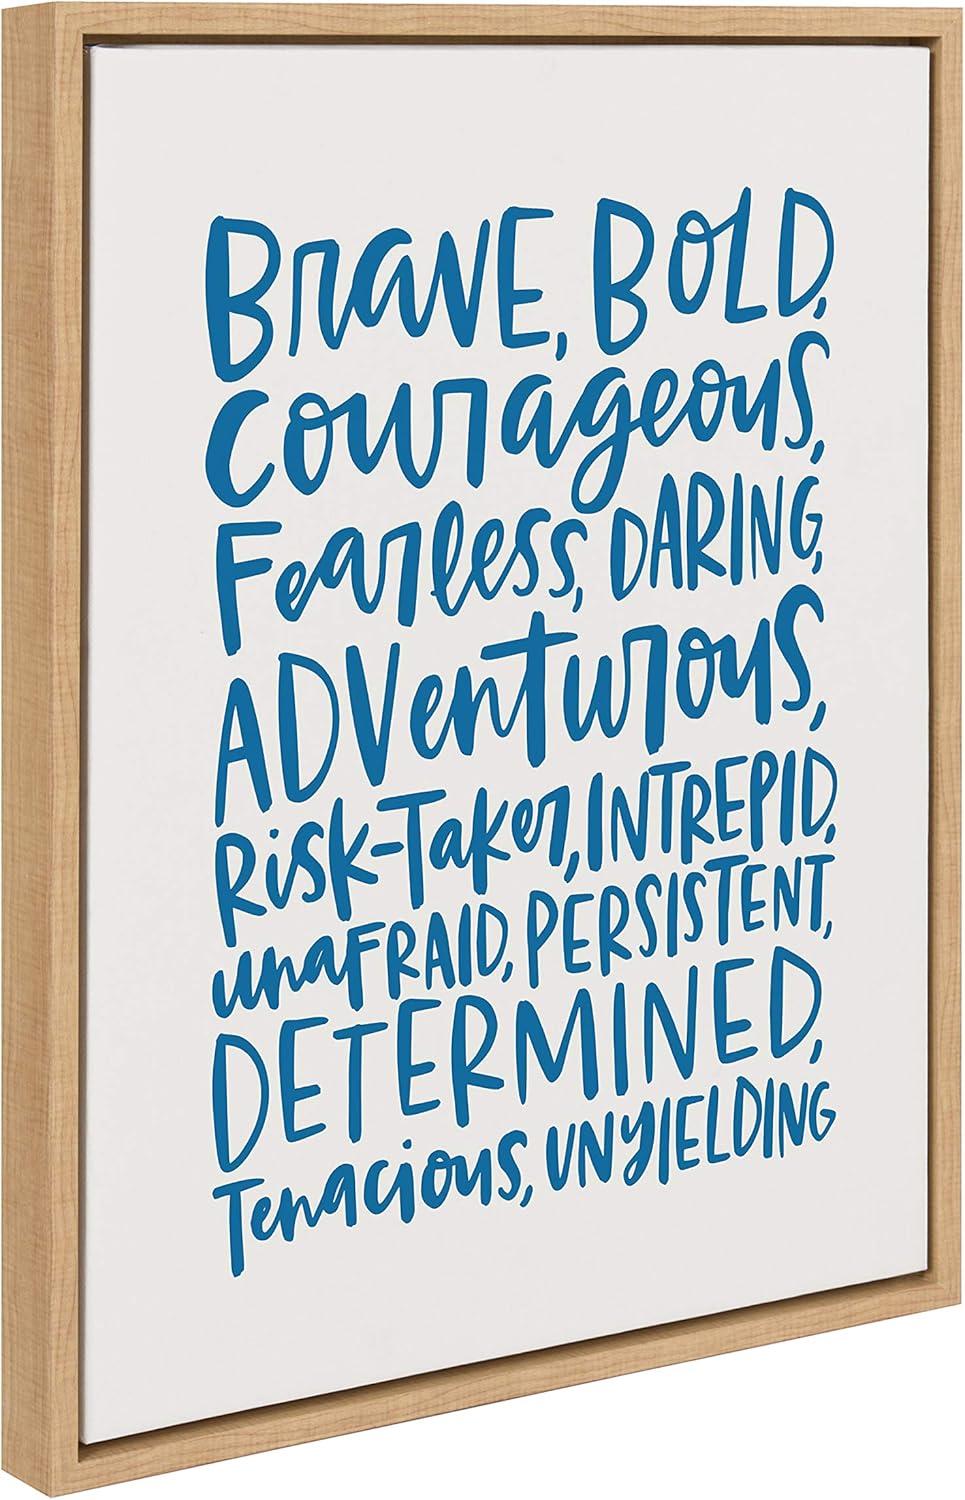 Brave, Bold,
Courageous,
Fearless, DARING,
ADVenturous,
Risk-Taker, INTREPID,
unaFRAID, PERSISTENT,
DETERMINED,
Tenacious, UNyIELDING